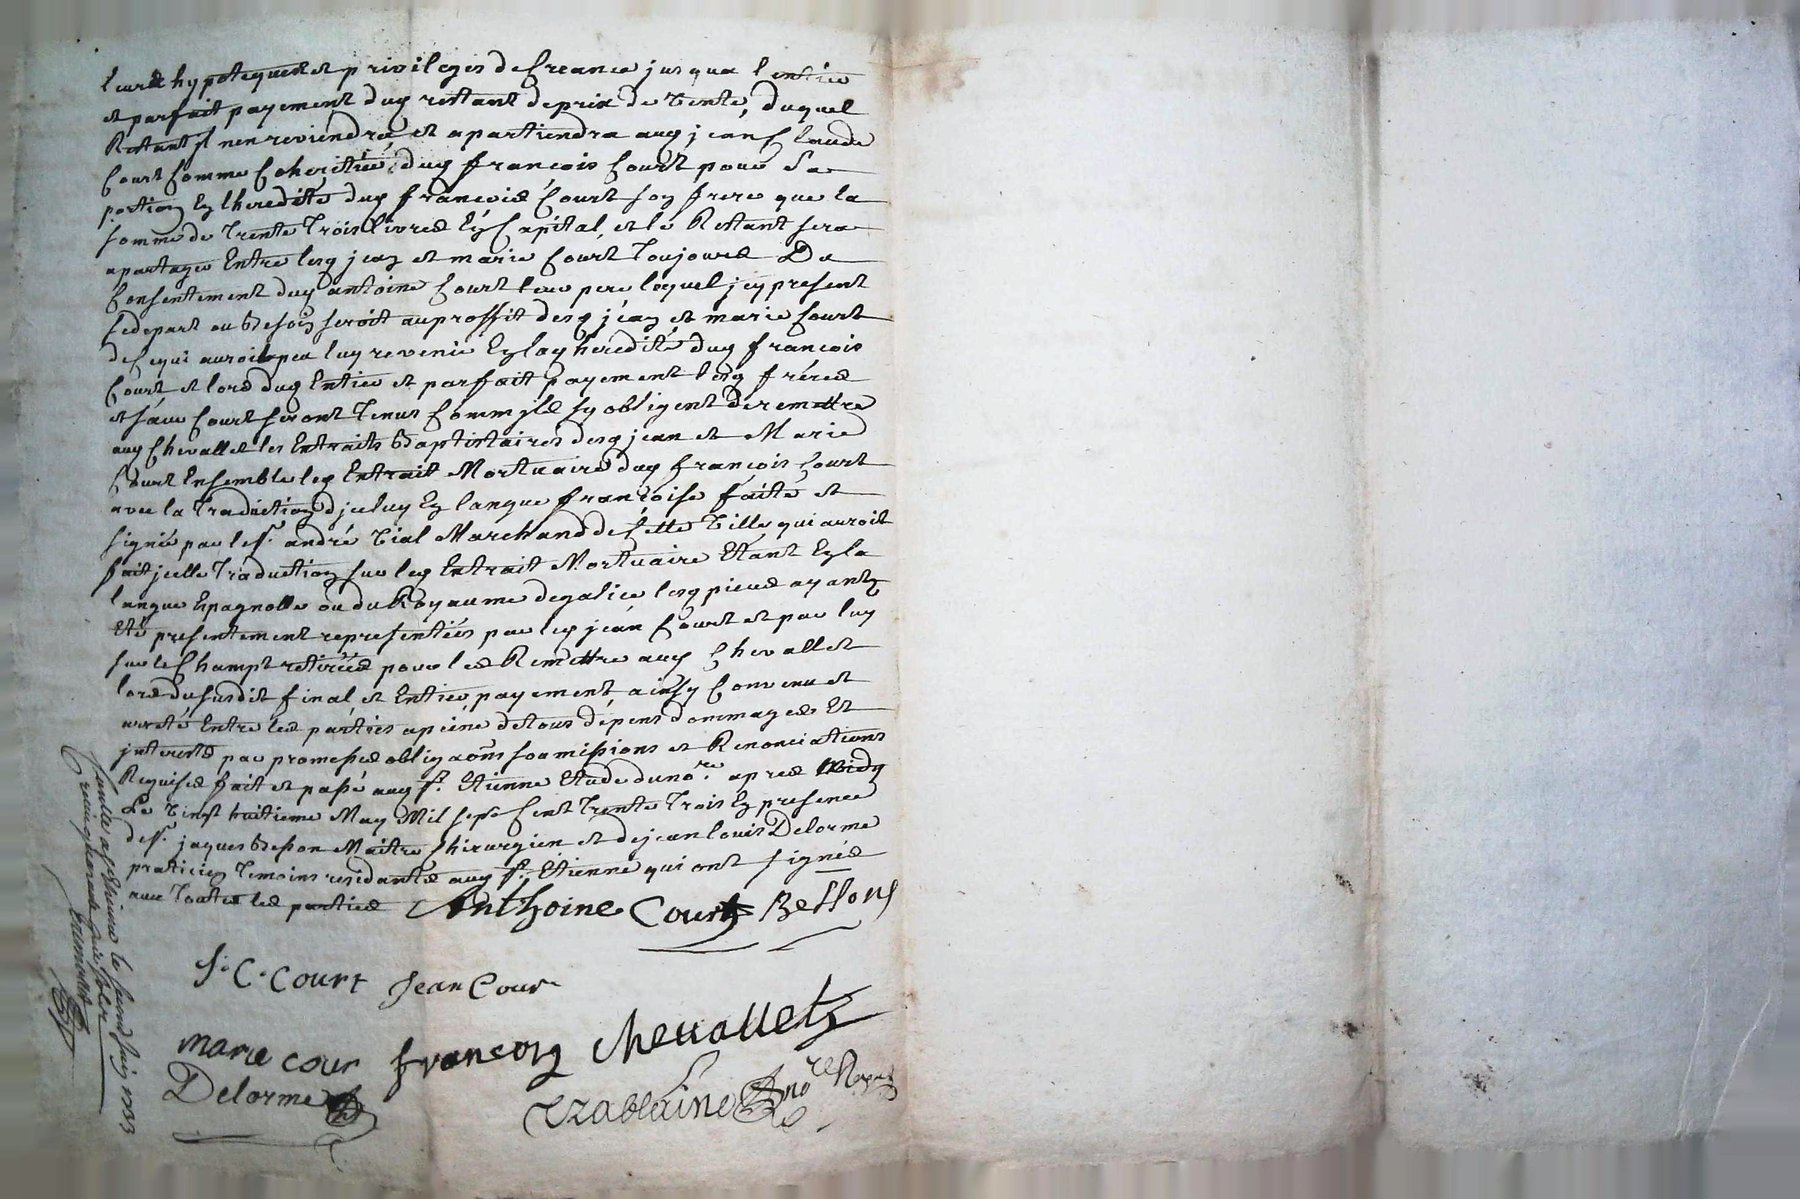 leurs hypoteques et privileges de creance jusqua lentier
et parfait payement dug restant de prix de vente, duquel
Restant Il nen reviendra et apartiendra aug jean Claude
Court comme coheritier dug francois Court pour Sa
portion En lheredité dug francois Court son frere que la
somme de Trente Trois livres En Capital, et le Restant sera
apartagé Entre lesq jean et marie Court Toujours Du
Consentement dug antoine Court leur pere lequel jcy present
se depart ou besoin seroit au proffit desq jean et marie Court
de ce qui auroit peu luy revenir En lag heredité dug francois
Court et lors dug Entier et parfait payement lesq fréres
et sœur Court seront Tenus Comm jls sy obligent de remettre
aug Chevallet les Extraits Baptistaires desq jean et Marie
Court Ensemble leq Extrait Mortuaire dug francois Court
avec la Traduction djceluy En langue francoise faite et
signée par le sr. andré Vial Marchand de Cette Ville qui auroit
fait jcelle Traduction sur leq Extrait Mortuaire Etant En la
langue Espagnolle ou du Royaume de galice lesq pieces ayants
Eté presentement representées par leq jean Court et par luy
sur le Champt retirées pour les Remettre aug Chevallet
lors du susdit final et Entier payement ainsy Convenu et
areté Entre les parties a peine de tous dépens dommages Et
jnterests par promesses obligaons soumissions et Renonciations
Requises fait et passé aug st. Etienne Etude du nore. apres Midy
Le Vingt huitieme May Mil sept Cent Trente Trois En presence
de sr. jaques Besson Maitre Chirurgien et de jean louis Delorme
praticien Temoins residants aug st. Etienne qui ont signés
avec Toutes les parties
Anthoine Court Bessons
J. C. Court Jean Cour
marie cour francois chevallet
Delorme
Trablaine nore Royal
Controllé a st etienne le second juin 1733